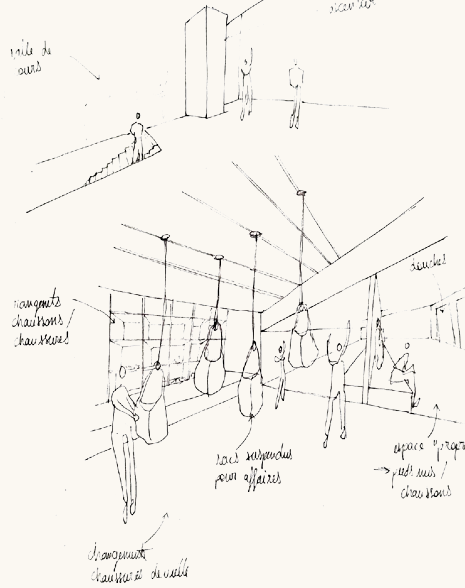 salle de
cours
douches
rangements
chaussons /
chaussures
sacs suspendus
pour affaires
espace "propre
→ pieds nus /
chaussons
changement
chaussures de ville